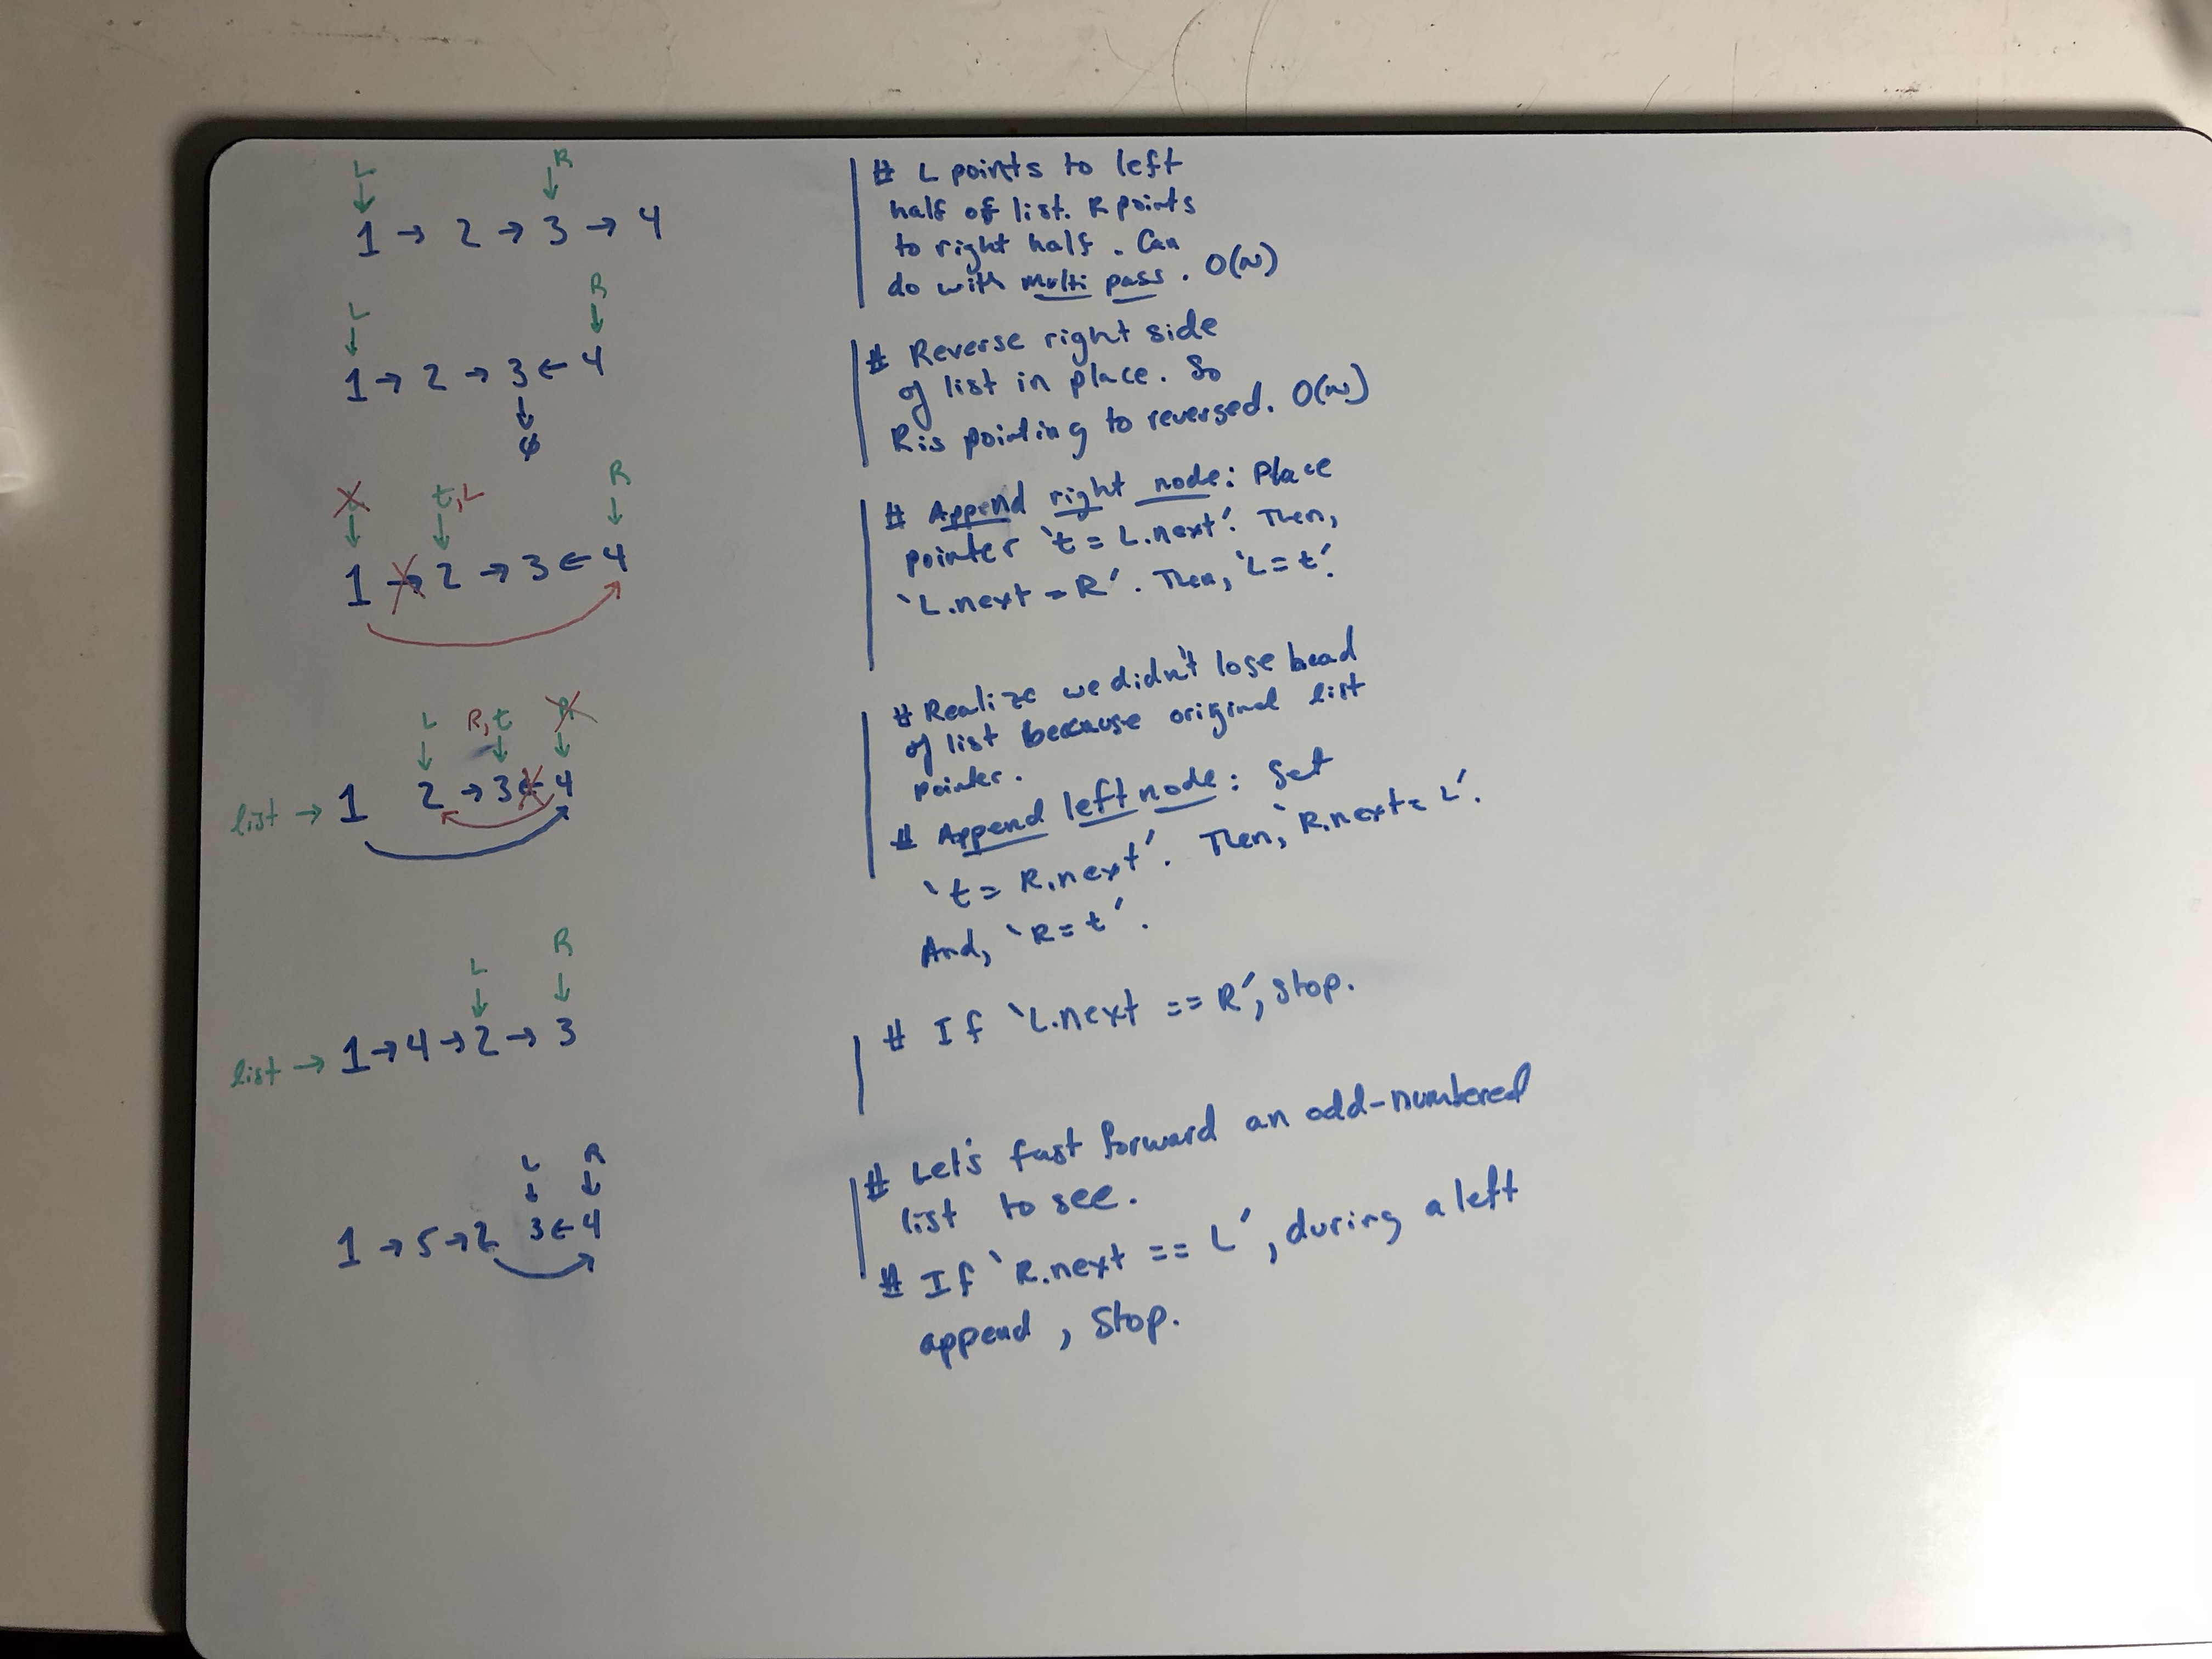 L R
↓ ↓
1 → 2 → 3 → 4
# L points to left
half of list. R points
to right half. Can
do with multi pass. O(N)
L R
↓ ↓
1 → 2 → 3 ← 4
↓
φ
# Reverse right side
of list in place. So
R is pointing to reversed. O(N)
t,L R
↓ ↓ ↓
1 → 2 → 3 ← 4
# Append right node: Place
pointer `t = L.next'. Then,
`L.next = R'. Then, `L = t'.
L R,t R
↓ ↓ ↓
list → 1 2 → 3 ← 4
# Realize we didn't lose head
of list because original list
pointer.
# Append left node: Set
`t = R.next'. Then, `R.next = L'.
And, `R = t'.
L R
↓ ↓
list → 1 → 4 → 2 → 3
# If `L.next == R', stop.
L R
↓ ↓
1 → 5 → 2 3 ← 4
# Let's fast forward an odd-numbered
list to see.
# If `R.next == L', during a left
append, stop.